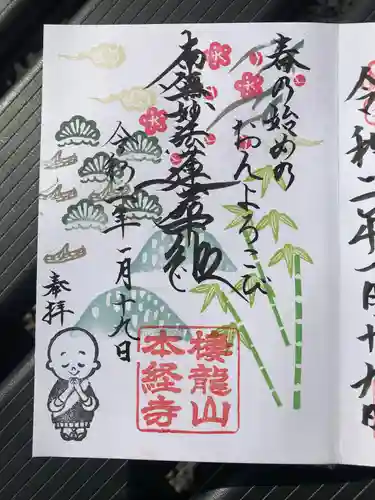 春の始めの
おんよろこび
南無妙法蓮華経
令和二年一月十九日
奉拝
棲龍山
本経寺
令和二年一月十九日